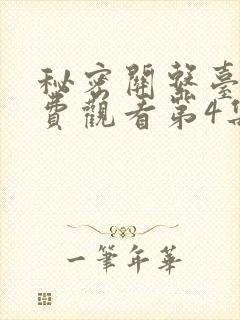 秘密關系臺
費觀看第4集
一筆年華